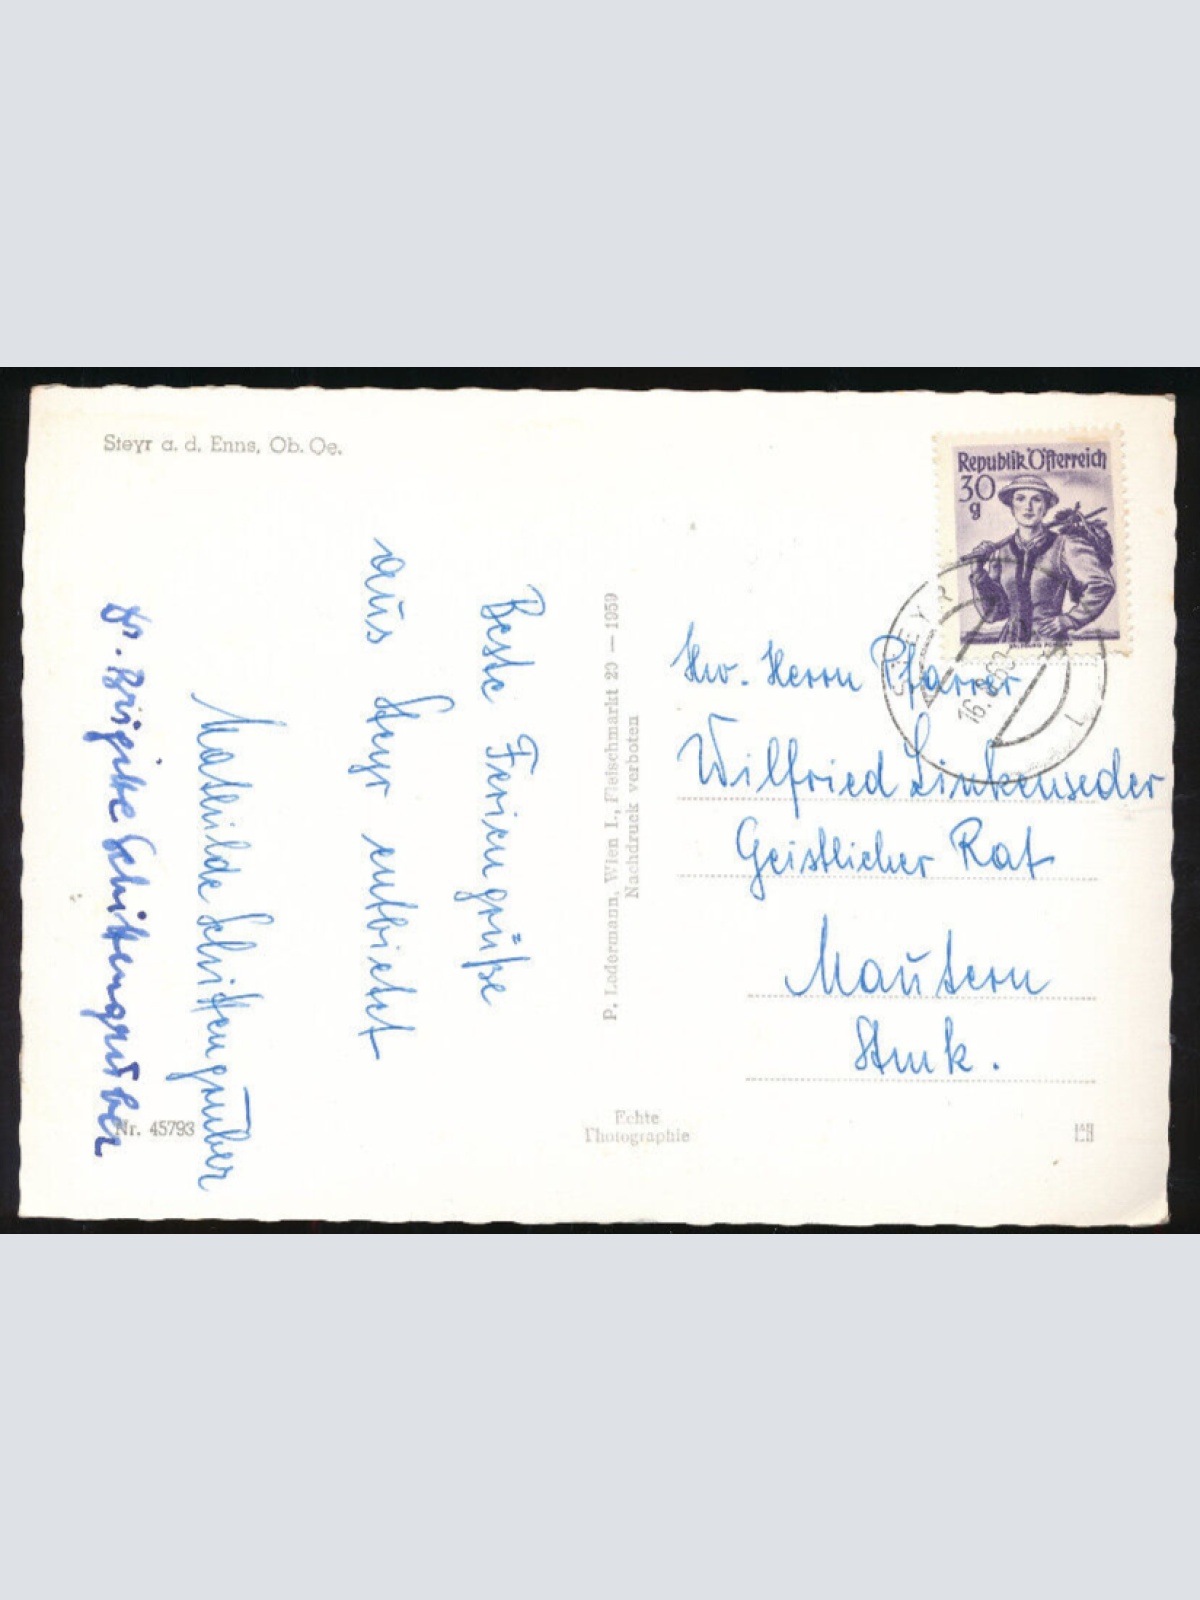 Steyr a. d. Enns, Ob. Oe.
Beste Feriengrüße
aus Steyr entbietet
Mathilde Schittengruber
Dr. Brigitte Schittengruber
Nr. 45793
P. Ledermann, Wien I., Fleischmarkt 20 — 1959
Nachdruck verboten
Echte
Photographie
Republik Österreich
30
g
STEYR
16.8.60
1
Hw. Herrn Pfarrer
Wilfried Linkenseder
Geistlicher Rat
Mautern
Stmk.